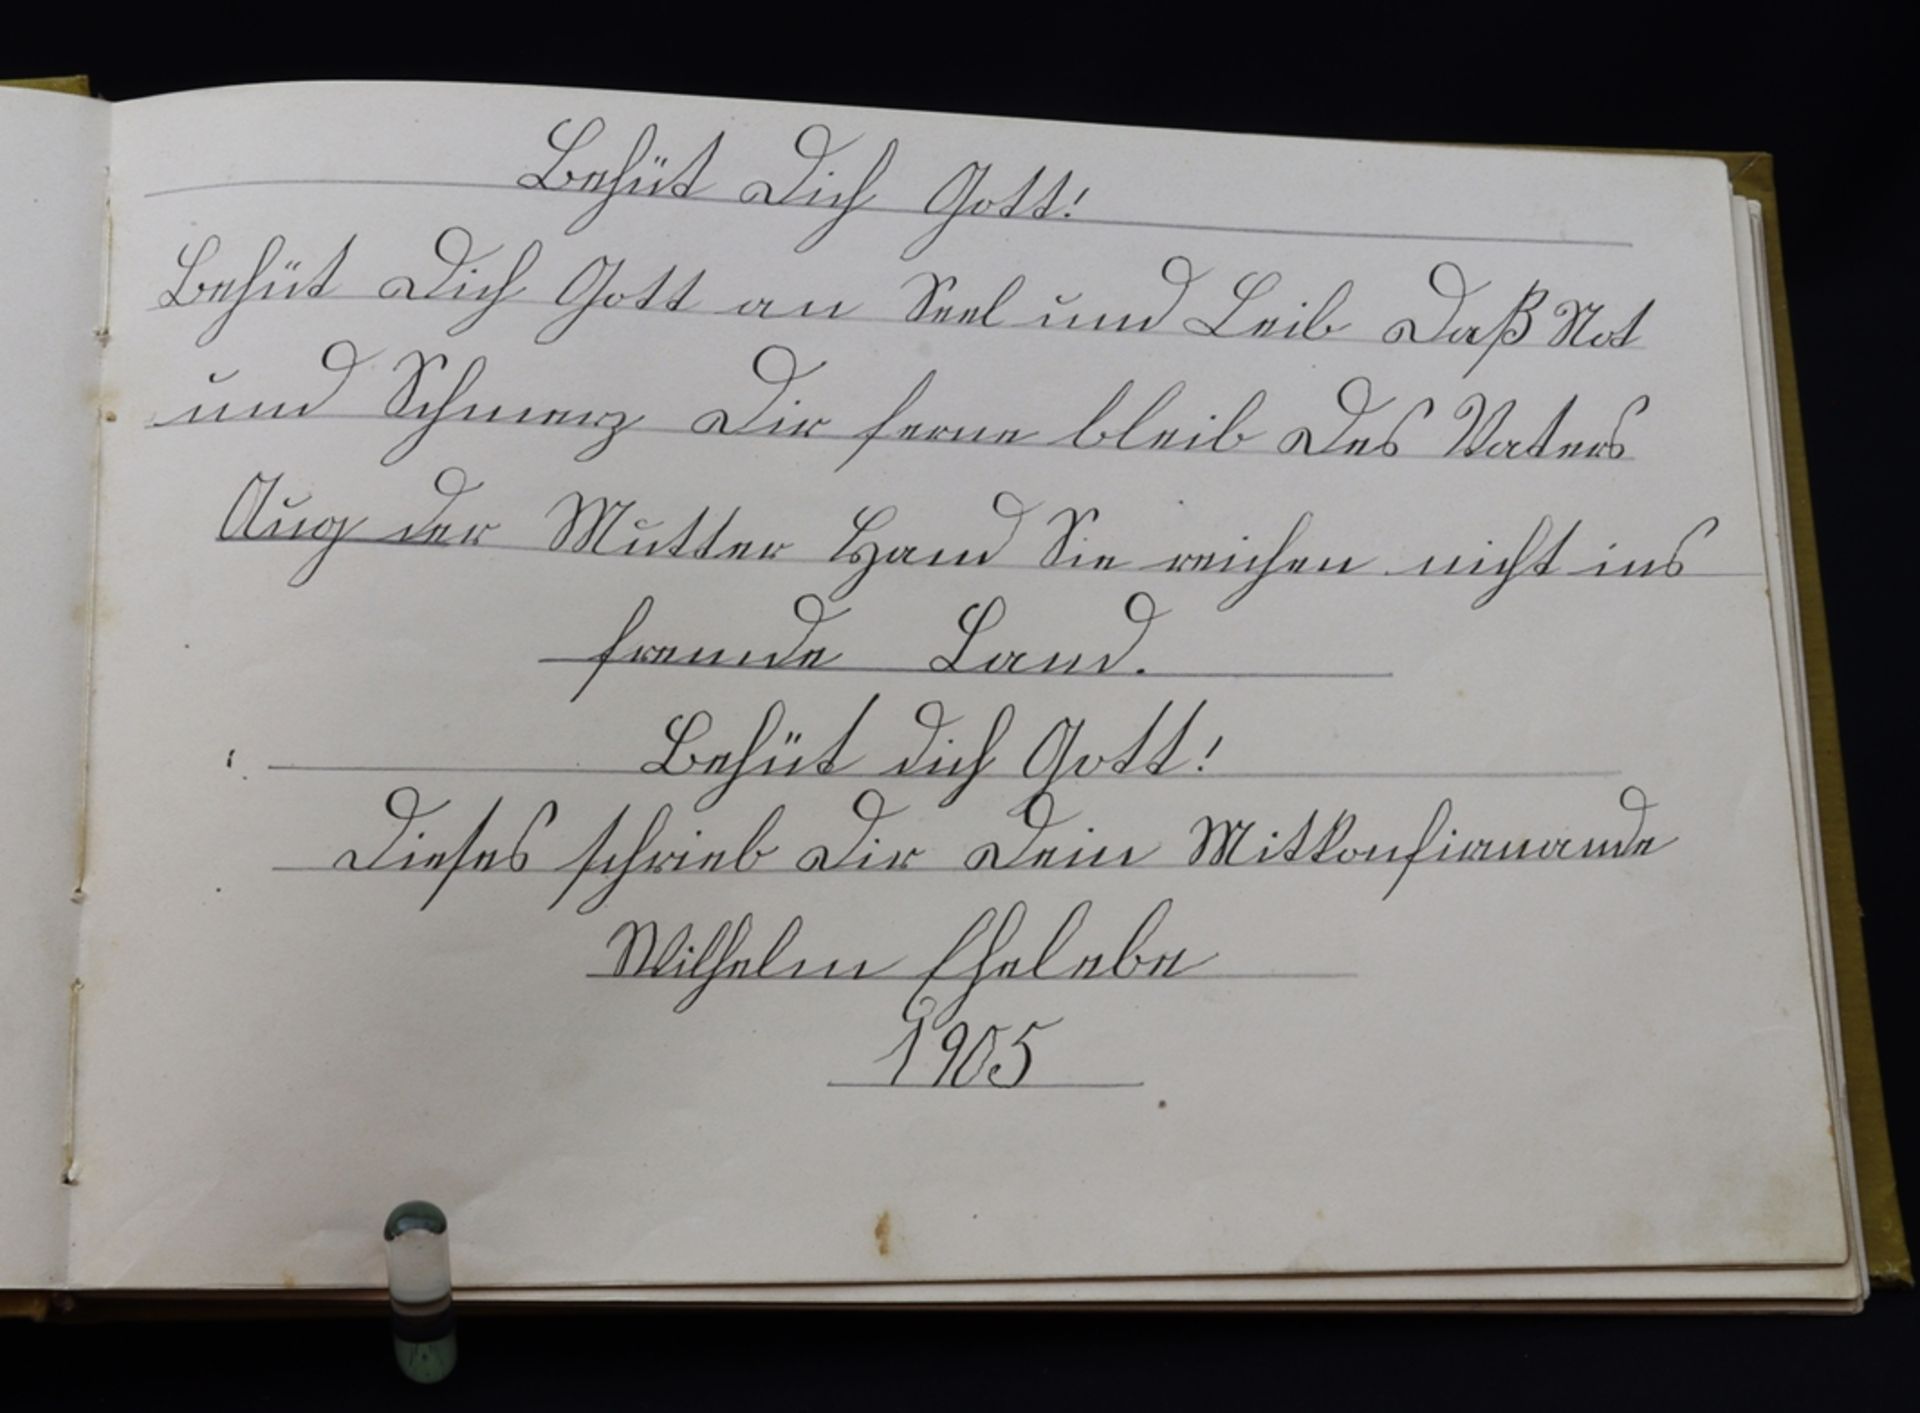 Behüt Dich Gott!
Behüt Dich Gott an Seel und Leib Daß Not
und Schmerz Dir ferne bleib Des Vaters
Aug der Mutter Hand Sie reichen nicht ins
fremde Land.
Behüt dich Gott!
Dieses schrieb Dir Dein Mitkonfirmande
Wilhelm Ehelebe
1905